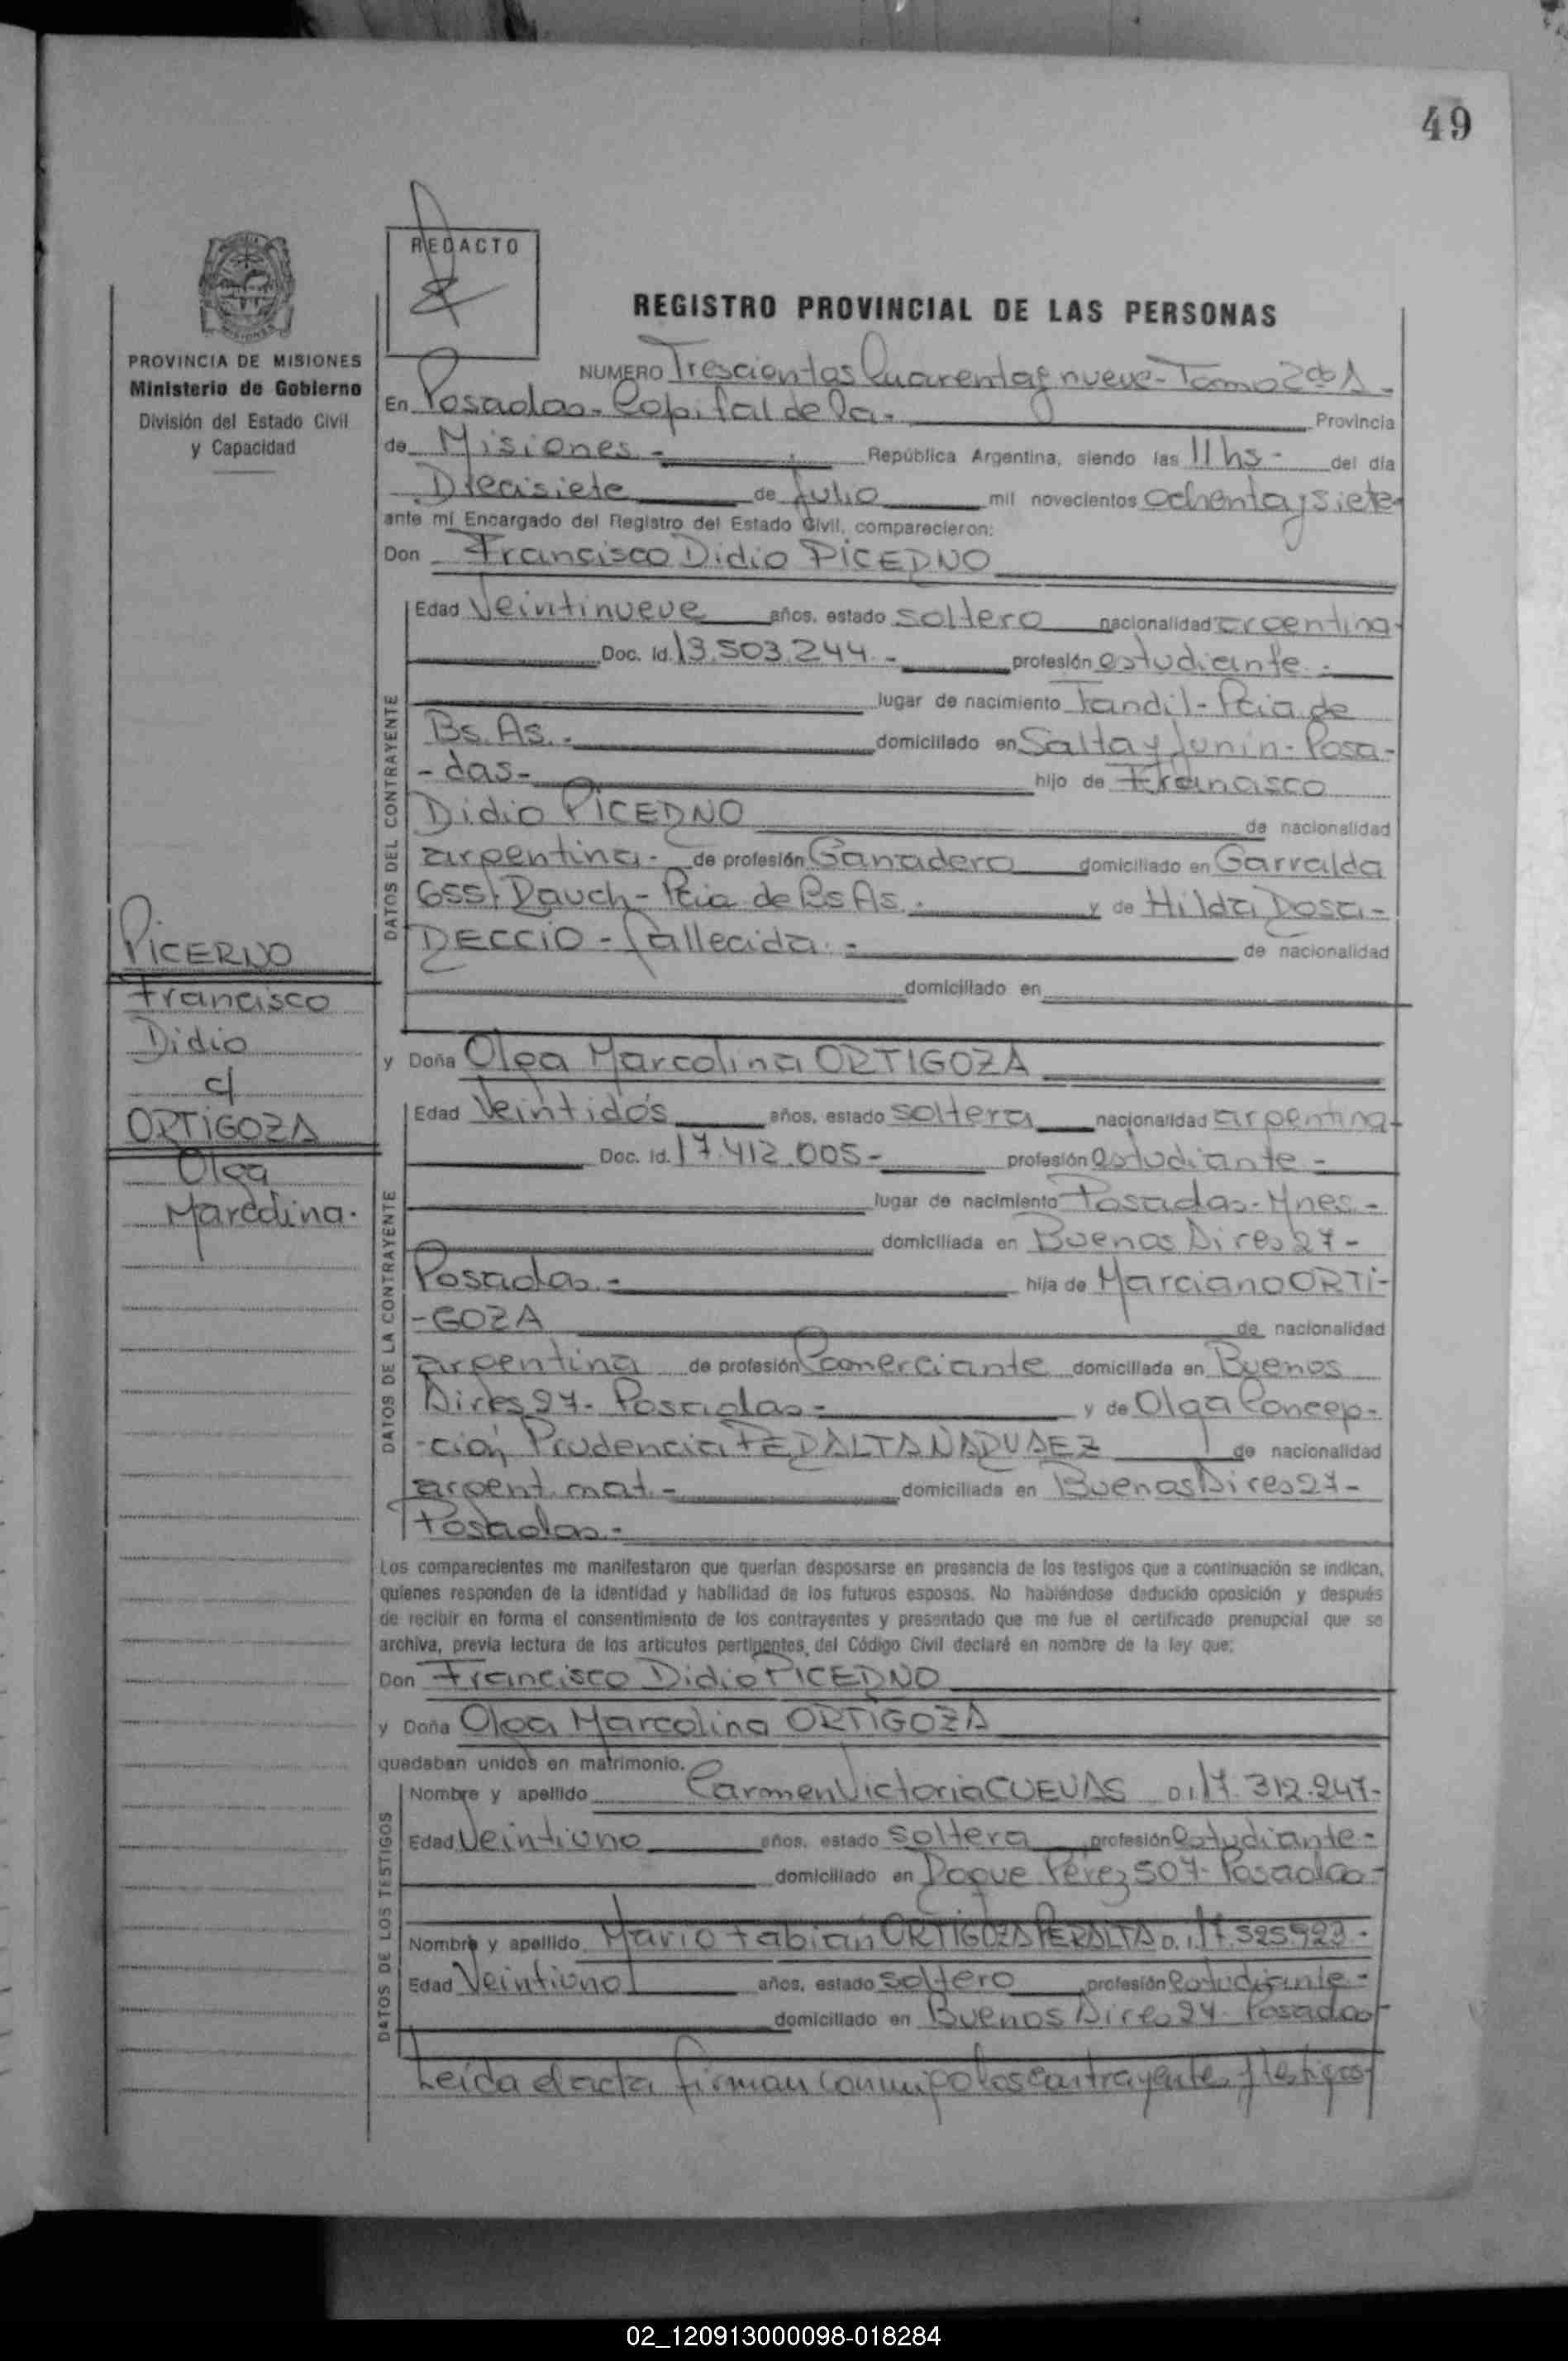 49
REDACTO
REGISTRO PROVINCIAL DE LAS PERSONAS
PROVINCIA DE MISIONES
Ministerio de Gobierno
División del Estado Civil
y Capacidad
NUMERO Trescientos Cuarenta y nueve - Tomo 2do A -
En Posadas - Capital de la - Provincia
de Misiones - República Argentina, siendo las 11 hs - del día
Diecisiete de Julio mil novecientos ochenta y siete
ante mí Encargado del Registro del Estado Civil, comparecieron:
Don Francisco Didio PICERNO
DATOS DEL CONTRAYENTE
Edad Veintinueve años, estado soltero nacionalidad argentina
Doc. Id. 13.503.244 - profesión estudiante -
lugar de nacimiento Tandil - Pcia de
Bs. As. - domiciliado en Salta y Junin - Posa-
- das - hijo de Francisco
Didio PICERNO de nacionalidad
argentina - de profesión Ganadero domiciliado en Garralda
655 Rauch - Pcia de Bs As. - y de Hilda Rosa -
RECCIO - fallecida - de nacionalidad
domiciliado en
PICERNO
Francisco
Didio
c/
ORTIGOZA
Olga
Marcolina.
y Doña Olga Marcolina ORTIGOZA
DATOS DE LA CONTRAYENTE
Edad Veintidós años, estado soltera nacionalidad argentina
Doc. Id. 17.412.005 - profesión estudiante -
lugar de nacimiento Posadas - Mnes -
domiciliada en Buenos Aires 27 -
Posadas - hija de Marciano ORTI-
- GOZA de nacionalidad
argentina de profesión Comerciante domiciliada en Buenos
Aires 27 - Posadas - y de Olga Concep-
- ción Prudencia PERALTA NARVAEZ de nacionalidad
argent. nat. - domiciliada en Buenos Aires 27 -
Posadas -
Los comparecientes me manifestaron que querían desposarse en presencia de los testigos que a continuación se indican,
quienes responden de la identidad y habilidad de los futuros esposos. No habiéndose deducido oposición y después
de recibir en forma el consentimiento de los contrayentes y presentado que me fue el certificado prenupcial que se
archiva, previa lectura de los artículos pertinentes, del Código Civil declaré en nombre de la ley que:
Don Francisco Didio PICERNO
y Doña Olga Marcolina ORTIGOZA
quedaban unidos en matrimonio.
DATOS DE LOS TESTIGOS
Nombre y apellido Carmen Victoria CUEVAS D.I 17.312.247 -
Edad Veintiuno años, estado soltera profesión estudiante -
domiciliado en Roque Pérez 507 - Posadas -
Nombre y apellido Mario Fabián ORTIGOZA PERALTA D.I 17.525923 -
Edad Veintiuno años, estado soltero profesión estudiante -
domiciliado en Buenos Aires 27 - Posadas
Leída el acta firman conmigo los contrayentes y testigos
02_120913000098-018284